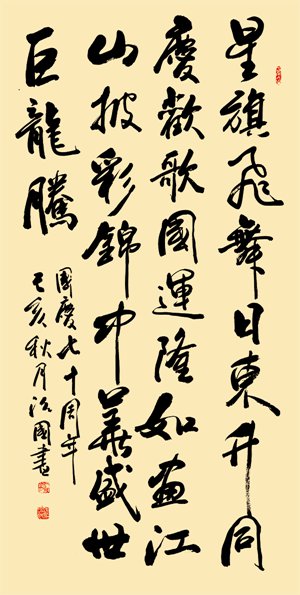 星旗飛舞日東升同
慶歡歌國運隆如畫江
山披彩錦中華盛世
巨龍騰
國慶七十周年
己亥秋月治國書